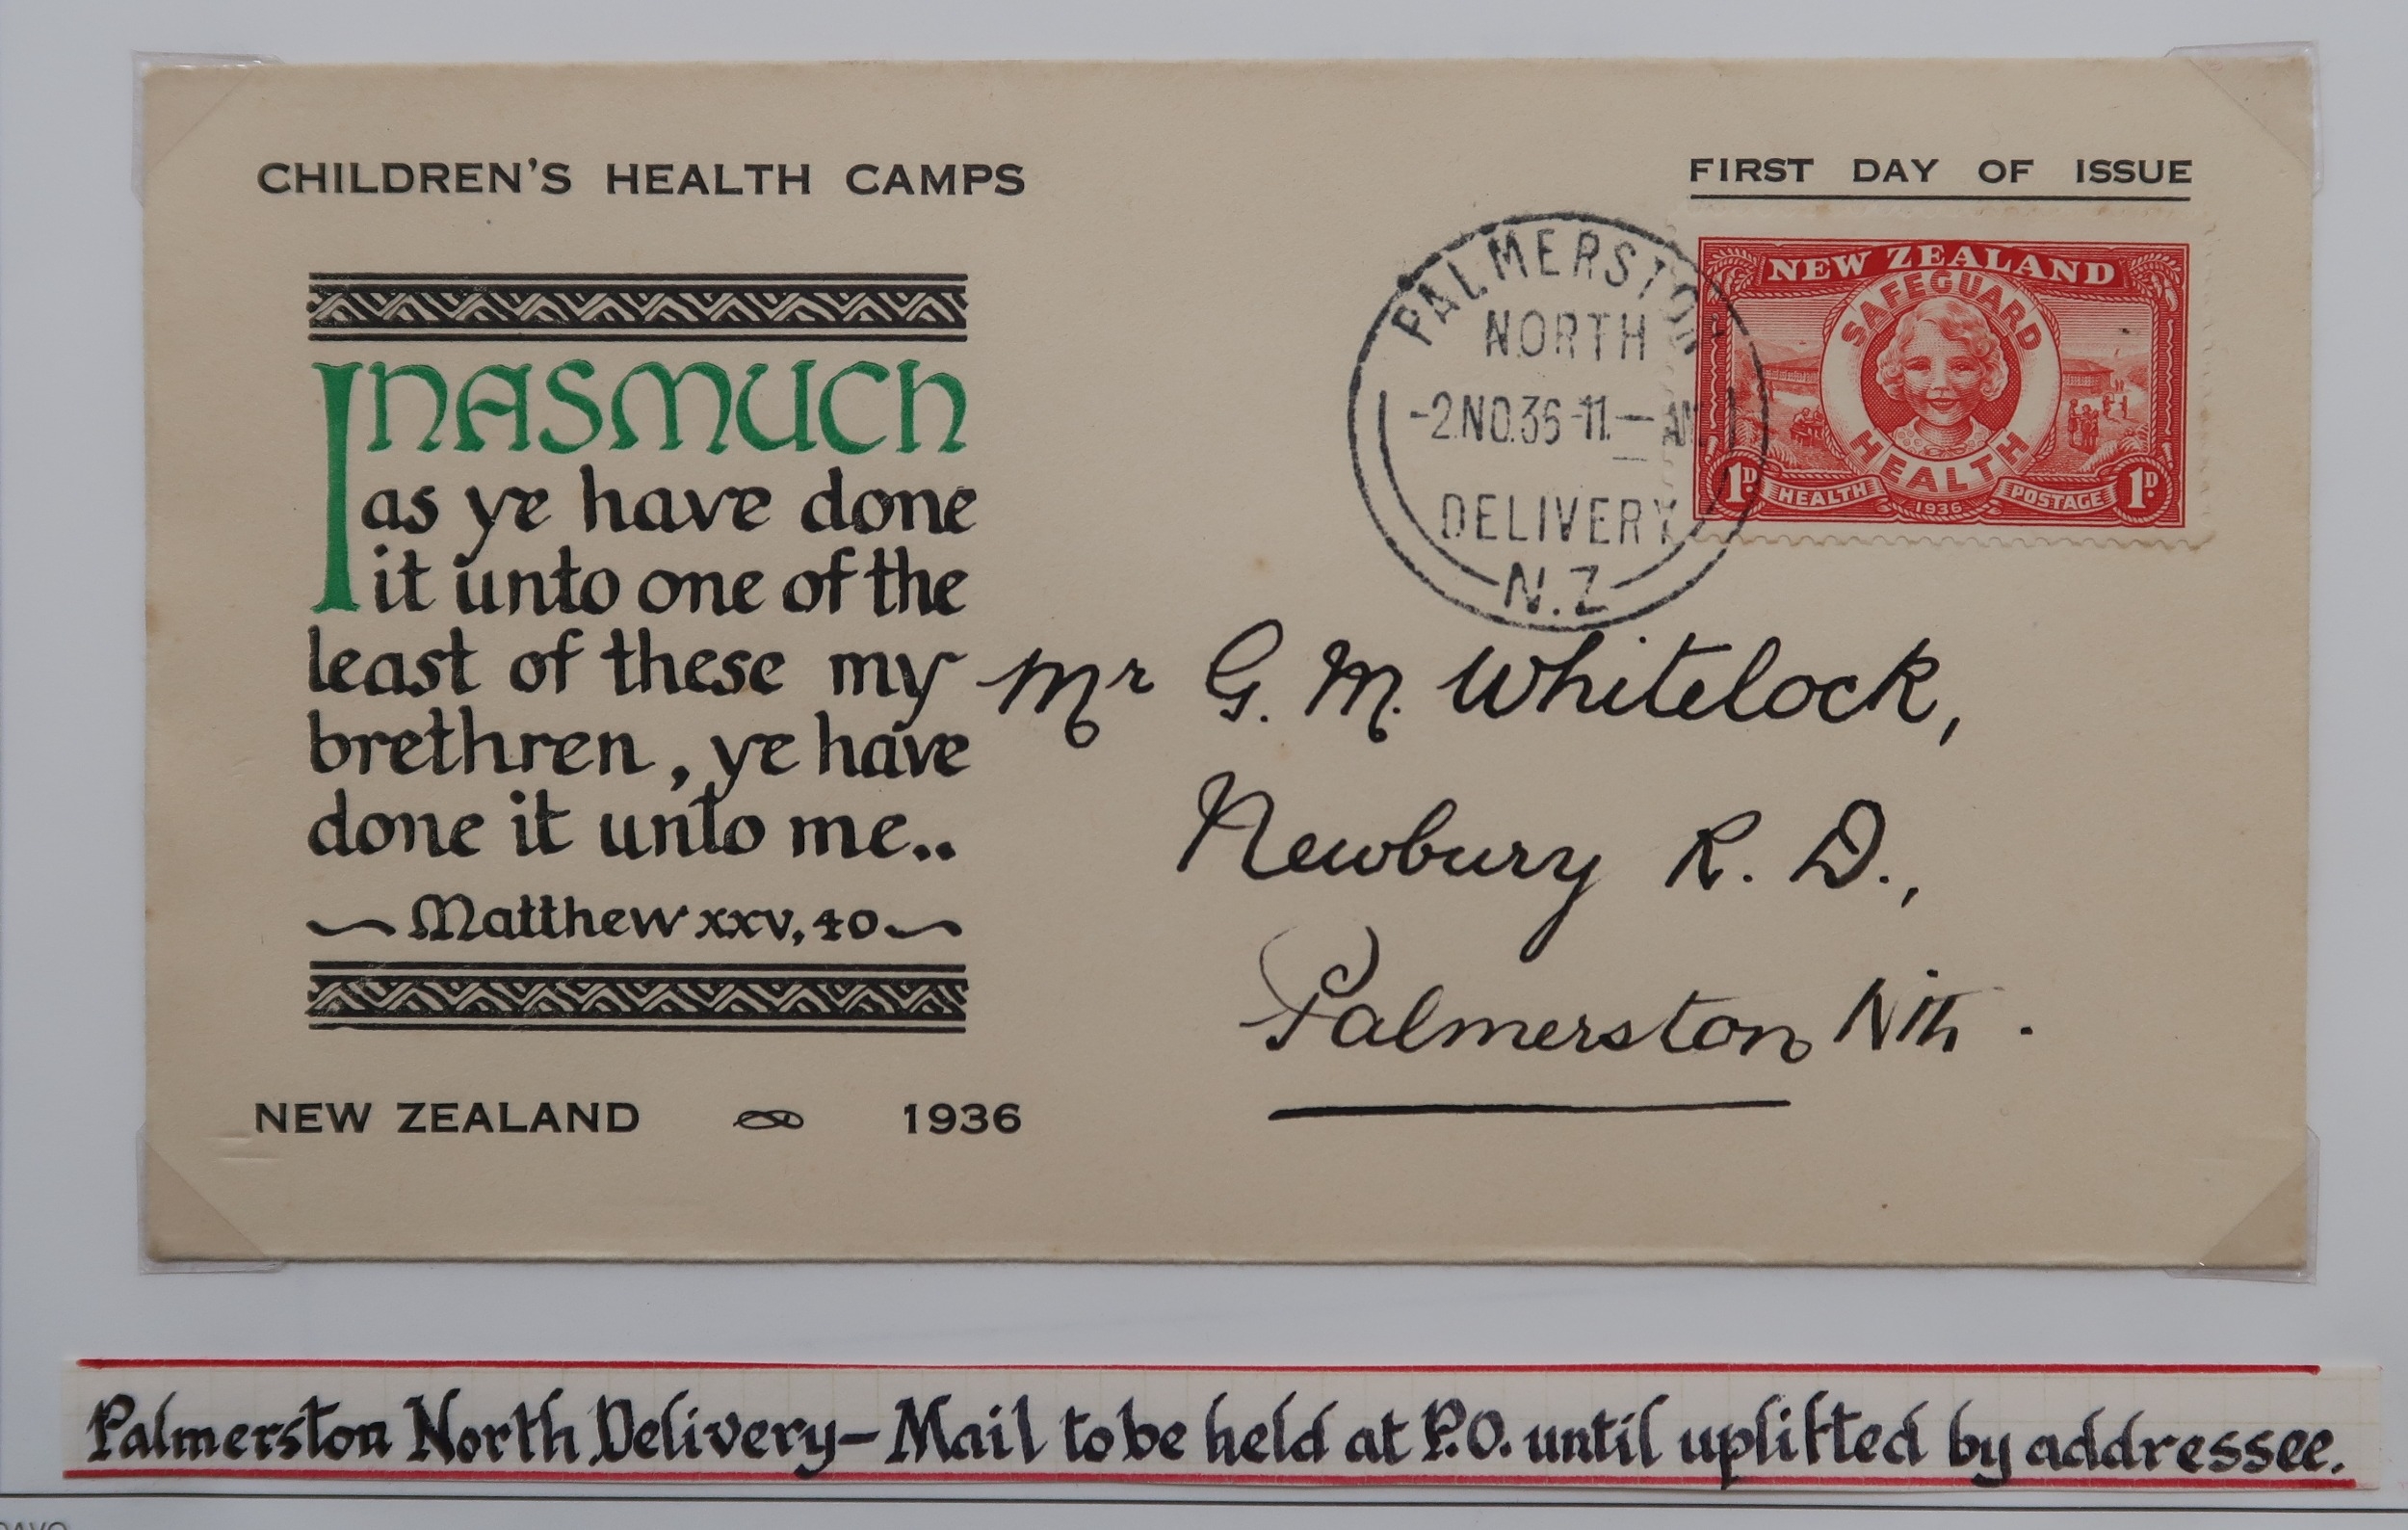 CHILDREN'S HEALTH CAMPS
FIRST DAY OF ISSUE
PALMERSTON
NORTH
-2.NO.36-11.—AM
DELIVERY
N.Z
NEW ZEALAND
SAFEGUARD
HEALTH
1D
HEALTH
1936
POSTAGE
1D
INASMUCH
as ye have done
it unto one of the
least of these my
brethren, ye have
done it unto me..
Matthew xxv, 40
NEW ZEALAND 1936
Mr G. M. Whitelock,
Newbury R. D.,
Palmerston Nth.
Palmerston North Delivery – Mail to be held at P.O. until uplifted by addressee.